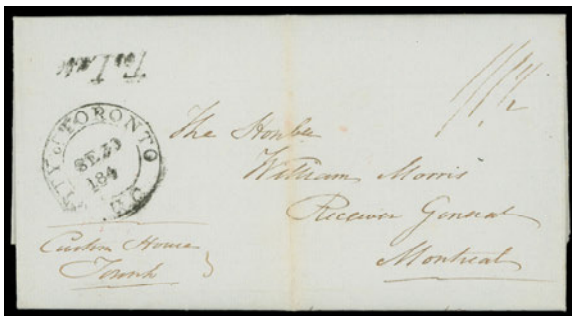 Too Late
CITY of TORONTO
SE 30
184
U.C.
The Honble
William Morris
Receiver General
Montreal
Custom House
Toronto